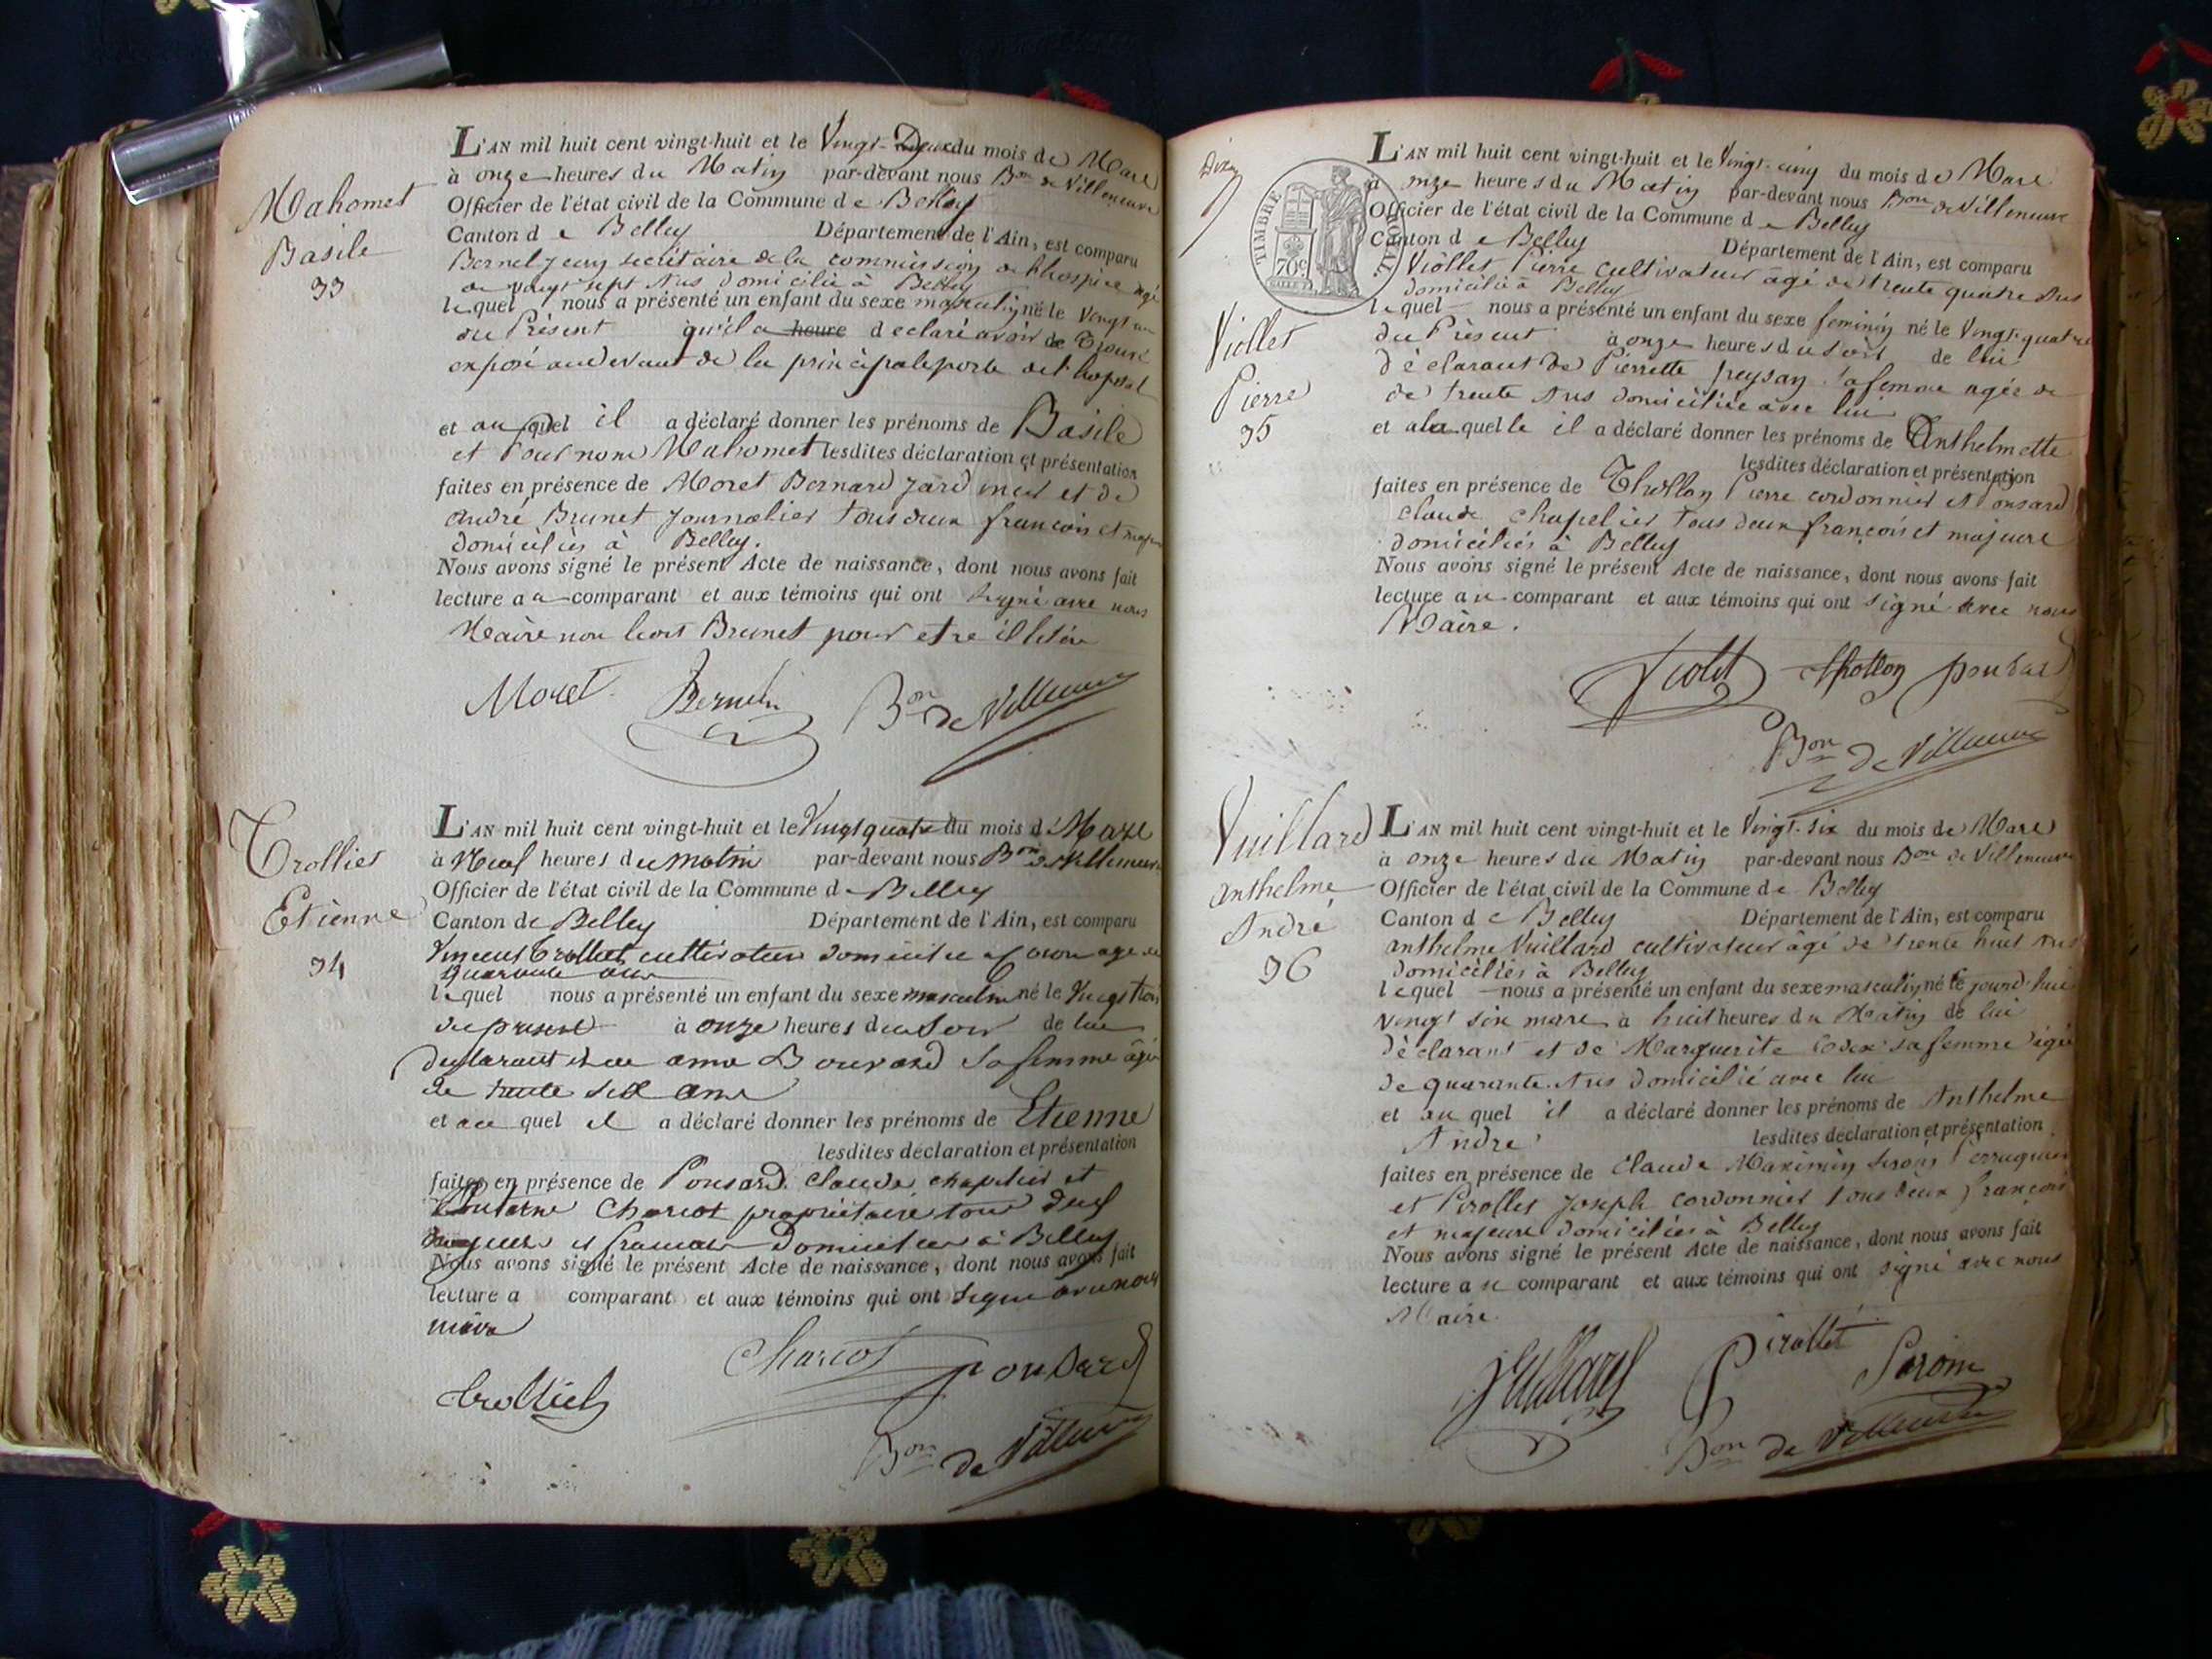 Mahomet
Basile
33
L'AN mil huit cent vingt-huit et le Vingt-Deux du mois de Mars
à onze heures du Matin par-devant nous Bon de Villeneuve
Officier de l'état civil de la Commune de Belley
Canton de Belley Département de l'Ain, est comparu
secrétaire de la commission de l'hospice agé
de vingt sept Ans domicilié à Belley
lequel nous a présenté un enfant du sexe masculin né le Vingt un
du Présent qu'il a heure declaré avoir été Trouvé
exposé au devant de la principale porte de l'hopital
et auquel il a déclaré donner les prénoms de Basile
et Pour nom Mahomet lesdites déclaration et présentation
faites en présence de Moret Bernard et de
André Brunet Journalier tous deux françois et majeurs
domiciliés à Belley.
Nous avons signé le présent Acte de naissance, dont nous avons fait
lecture au comparant et aux témoins qui ont signé avec nous
Maire non Brunet pour etre
Moret Bon de Villeneuve
Trollier
Etienne
34
L'AN mil huit cent vingt-huit et le Vingt quatre du mois de Mars
à Neuf heures du matin par-devant nous Bon de Villeneuve
Officier de l'état civil de la Commune de Belley
Canton de Belley Département de l'Ain, est comparu
Vincent Trolliet cultivateur domicilié agé de
quarante ans
lequel nous a présenté un enfant du sexe masculin né le Vingt trois
du present à onze heures du soir de lui
declarant et de Bouvard sa femme âgée
de trente six ans
et au quel il a déclaré donner les prénoms de Etienne
lesdites déclaration et présentation
faites en présence de Ponsard Claude chapelier et
Charcot propriétaire tous deux
majeurs et francais domiciliés à Belley
Nous avons signé le présent Acte de naissance, dont nous avons fait
lecture a comparant et aux témoins qui ont signé avec nous
maire
Charcot ponsard
trolliet
Bon de Villeneuve
TIMBRE
ROYAL
70c
Viollet
Pierre
35
L'AN mil huit cent vingt-huit et le Vingt-cinq du mois de Mars
à onze heures du Matin par-devant nous Bon de Villeneuve
Officier de l'état civil de la Commune de Belley
Canton de Belley Département de l'Ain, est comparu
Viollet Pierre cultivateur âgé de trente quatre Ans
domicilié à Belley
lequel nous a présenté un enfant du sexe feminin né le Vingt-quatre
du Présent à onze heures du soir de lui
déclarant de Pierrette sa femme agée de
de trente Ans domiciliée avec lui
et a la quelle il a déclaré donner les prénoms de Anthelmette
lesdites déclaration et présentation
faites en présence de Pierre cordonnier et Ponsard
claude chapelier tous deux françois et majeurs
domiciliés à Belley
Nous avons signé le présent Acte de naissance, dont nous avons fait
lecture au comparant et aux témoins qui ont signé avec nous
Maire.
Violet ponsard
Bon de Villeneuve
Vuillard
anthelme
André
36
L'AN mil huit cent vingt-huit et le Vingt-six du mois de Mars
à onze heures du Matin par-devant nous Bon de Villeneuve
Officier de l'état civil de la Commune de Belley
Canton de Belley Département de l'Ain, est comparu
anthelme Vuillard cultivateur âgé de trente huit Ans
domiciliés à Belley
lequel nous a présenté un enfant du sexe masculin né le jourd'hui
vingt six mars à huit heures du Matin de lui
déclarant et de Marguerite sa femme agée
de quarante Ans domicilié avec lui
et au quel il a déclaré donner les prénoms de Anthelme
André lesdites déclaration et présentation
faites en présence de Claude Maximin Perruquier
et Pirollet Joseph cordonnier tous deux françois
et majeurs domiciliés à Belley
Nous avons signé le présent Acte de naissance, dont nous avons fait
lecture au comparant et aux témoins qui ont signé avec nous
Maire.
Vuillard Pirollet
Bon de Villeneuve